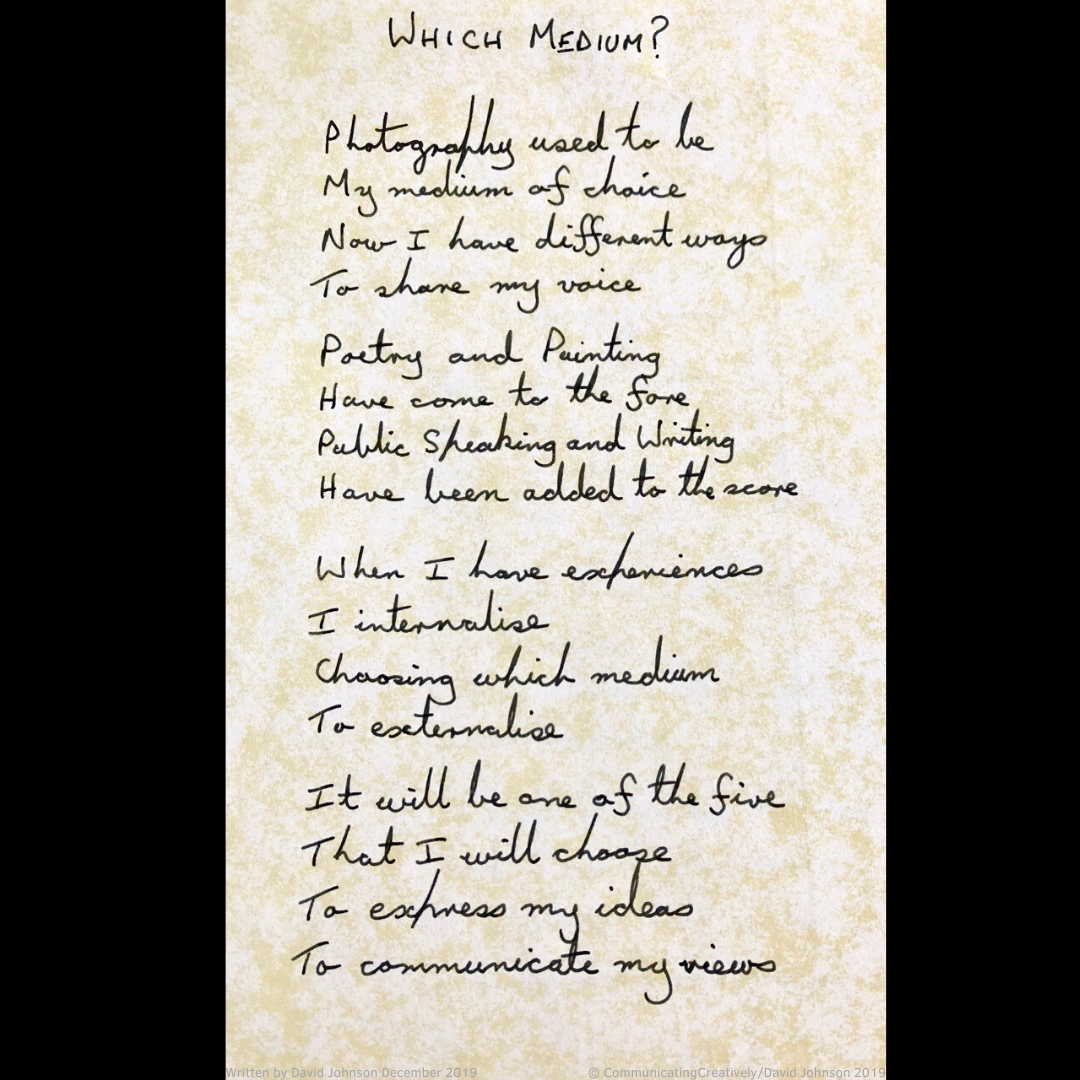 WHICH MEDIUM?
Photography used to be
My medium of choice
Now I have different ways
To share my voice
Poetry and Painting
Have come to the fore
Public Speaking and Writing
Have been added to the score
When I have experiences
I internalise
Choosing which medium
To externalise
It will be one of the five
That I will choose
To express my ideas
To communicate my views
Written by David Johnson December 2019
© CommunicatingCreatively/David Johnson 2019